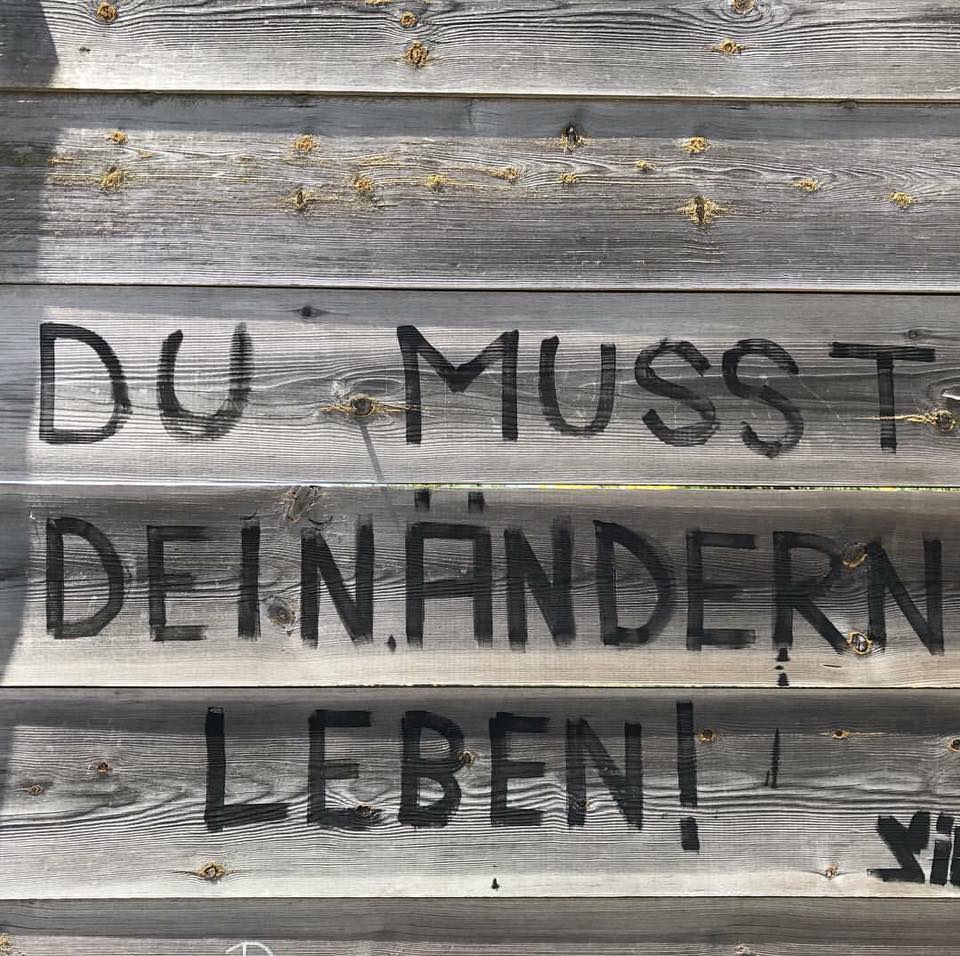 DU MUSST
DEIN ÄNDERN
LEBEN!